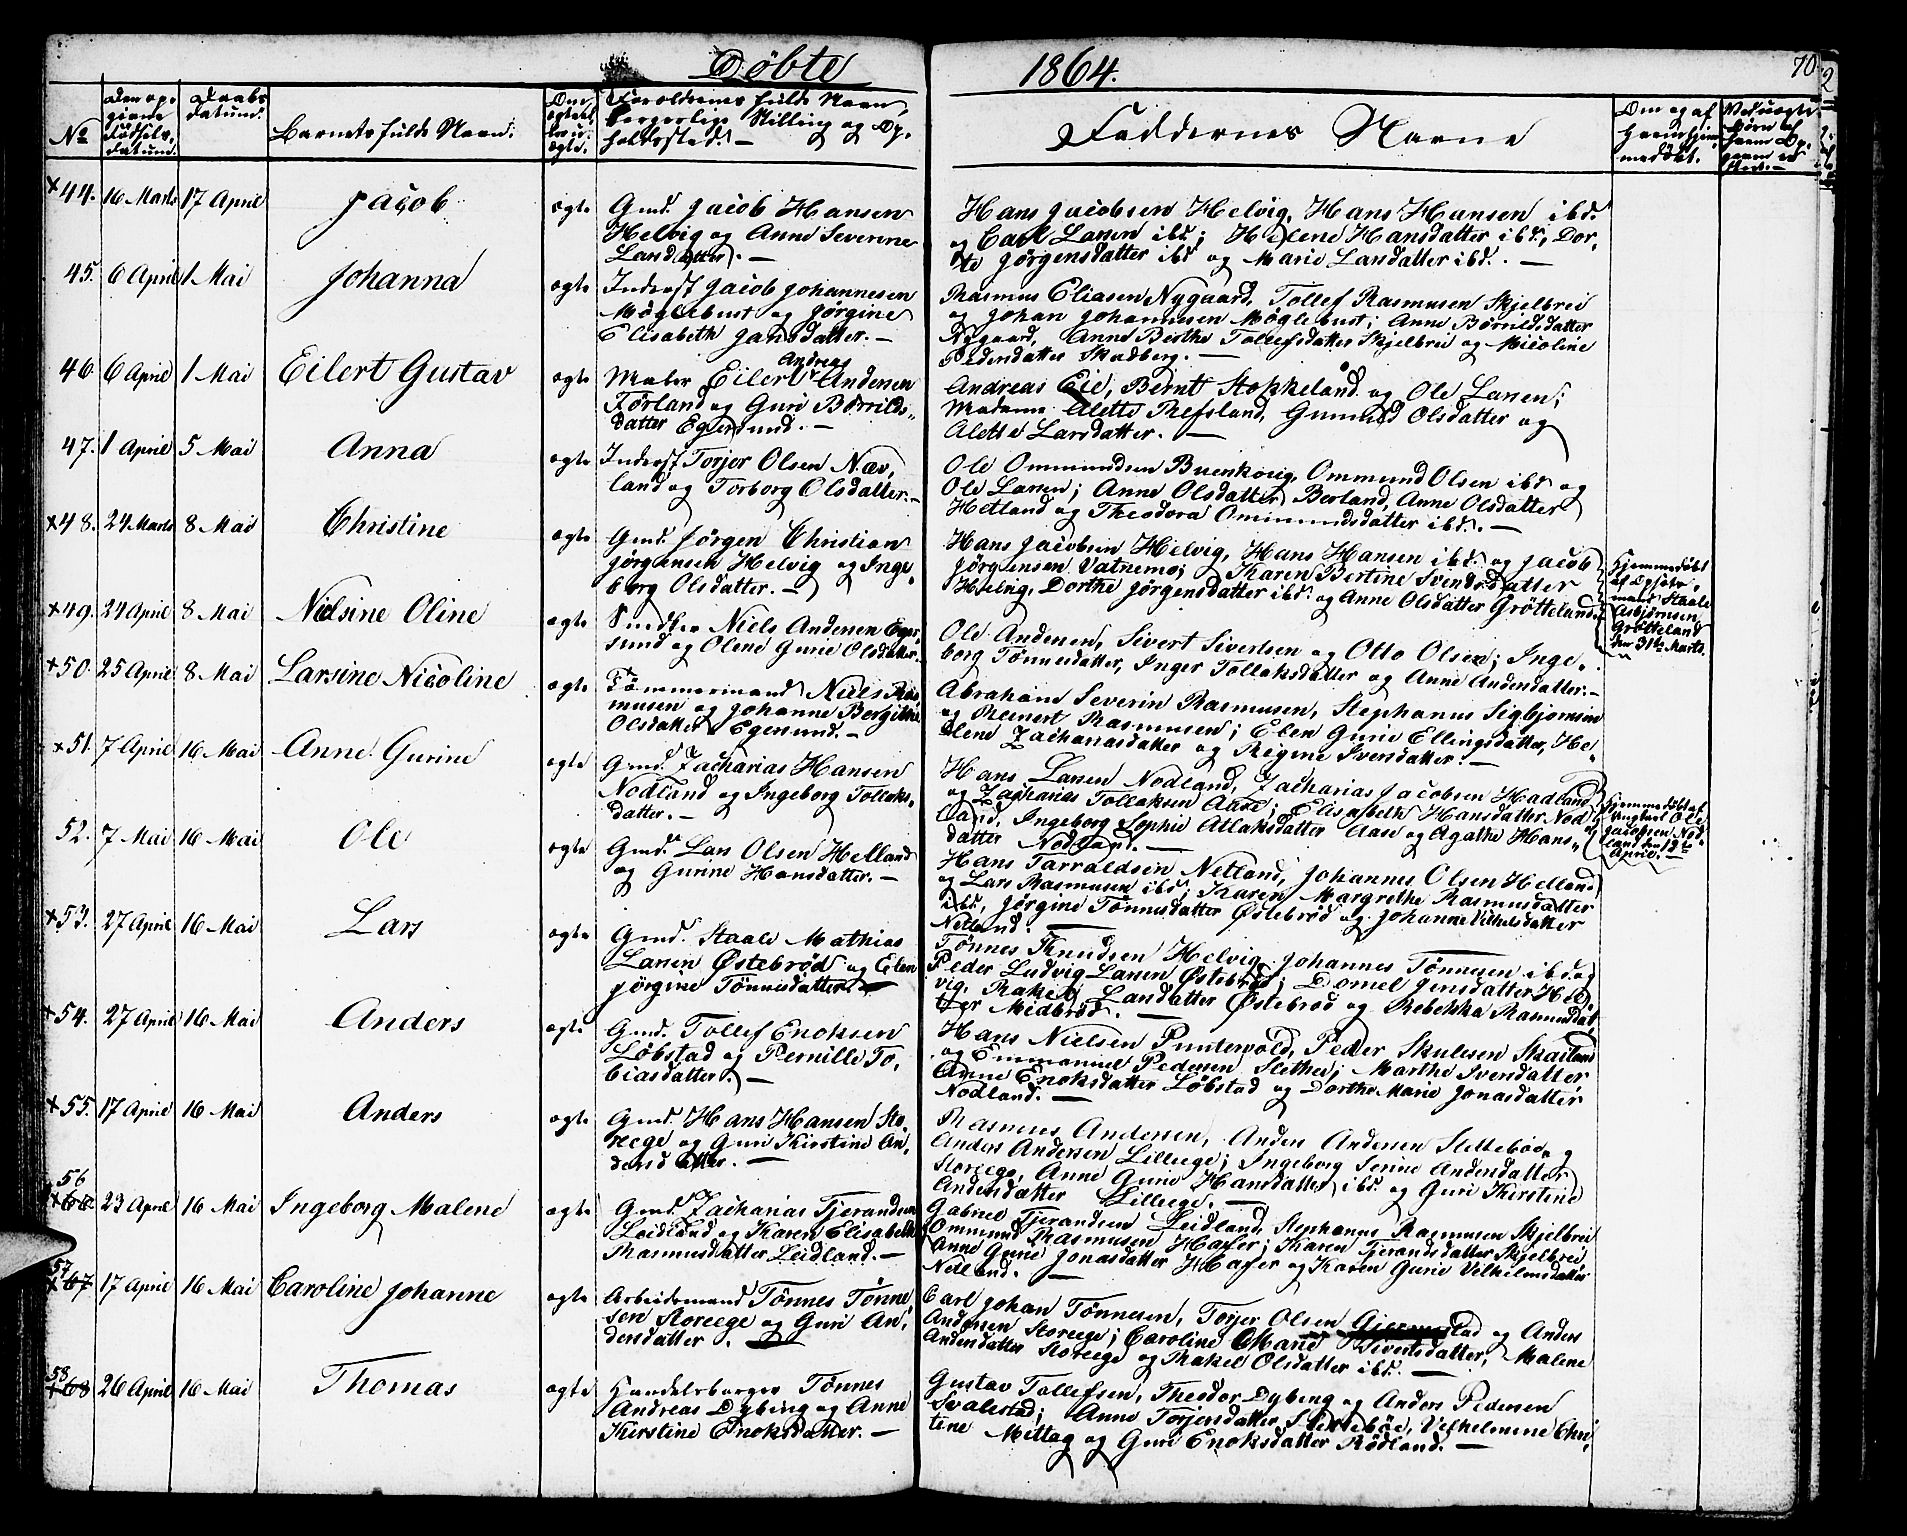 Døbte
1864.
70.
No
Den opgivne Fødselsdatum.
Daabsdatum.
Barnets fulde Navn.
Om ægte eller uægte.
Forældrenes fulde Navn, borgerlige Stilling og Opholdssted. —
Faddernes Navne
Om og af hvem hjemmedøbt.
+44. 16 Marts 17 April Jacob ægte
Gmd. Jacob Hansen
Helvig og Anne Severine
Larsdatter. —
Hans Jacobsen Helvig, Hans Hansen ibd.
og Carl Larsen ibd; Helene Hansdatter ibd, Dor,
te Jørgensdatter ibd og Marie Larsdatter ibd. —
45. 6 April 1 Mai Johanna ægte
Inderst Jacob Johannesen
Møglebust og Jørgine
Elisabeth Jansdatter. —
Rasmus Eliasen Nygaard, Tollef Rasmusen Skjelbrei
og Johan Johannesen Møglebust; Anne Børrildsdatter
Nygaard, Anne Berthe Tollefsdatter Skjelbrei og Nicoline
Pedersdatter Skadberg. —
46 6 April 1 Mai Eilert Gustav ægte
Maler Eilert Andreas Andersen
Førland og Guri Børrilds,
datter Egersund. —
Andreas Eie, Bernt Stokkeland og Ole Larsen;
Madame Alette Refsland, Gunnild Olsdatter og
Alette Larsdatter. —
47. 1 April 5 Mai Anna ægte
Inderst Torjer Olsen Næv,
land og Torborg Olsdatter. —
Ole Ommundsen Buenskoug, Ommund Olsen ibd og
Ole Larsen; Anne Olsdatter Berland, Anne Olsdatter
Hetland og Theodora Ommundsdatter ibd. —
+48. 24 Marts 8 Mai Christine ægte
Gmd. Jørgen Christian
Jørgensen Helvig og Inge,
borg Olsdatter. —
Hans Jacobsen Helvig, Hans Hansen ibd. og Jacob
Jørgensen Vatnemo; Karen Bertine Svendsdatter
Helvig, Dorthe Jørgensdatter ibd. og Anne Olsdatter Grøtteland.
Hjemmedøbt
af Opsidder,
mand Staale
Asbjørnsen
Grøtteland
den 31te Marts.
+49. 24 April 8 Mai Nielsine Oline ægte
Snedker Niels Andersen Eger,
sund og Olene Gurie Olsdatter.
Ole Andersen, Sivert Sivertsen og Otto Olsen; Inge,
borg Tønnesdatter, Inger Tollaksdatter og Anne Andersdatter. —
+50. 25 April 8 Mai Larsine Nicoline ægte
Tømmermand Niels Ras,
musen og Johanne Bergithe
Olsdatter Egersund. —
Abraham Severin Rasmusen, Stephanus Sigbjørnsen
og Reinert Rasmusen; Elen Gurie Ellingsdatter, He,
lene Zachariasdatter og Regine Iversdatter. —
+51. 7 April 16 Mai Anne Gurine ægte
Gmd. Zacharias Hansen
Nodland og Ingeborg Tollaks,
datter. —
Hans Larsen Nodland, Zacharias Jacobsen Hadland
og Zacharias Tollaksen Aase; Elisabeth Hansdatter Nod,
land, Ingeborg Sophie Atlaksdatter Aase og Agathe Hans,
datter Nodland. —
Hjemmedøbt af
Ungkarl Ole
Jacobsen Nod,
land den 12te
April. —
52. 7 Mai 16 Mai Ole ægte
Gmd. Lars Olsen Helland
og Gurine Hansdatter. —
Hans Tarraldsen Netland, Johannes Olsen Helland
og Lars Rasmusen ibd; Karen Margrethe Rasmusdatter
ibd, Jørgine Tønnesdatter Østebrød og Johanne Vilhelsdatter
Netland. —
+53. 27 April 16 Mai Lars ægte
Gmd. Staale Mathias
Larsen Østebrød og Elen
Jørgine Tønnesdatter. —
Tønnes Knudsen Helvig, Johannes Tønnesen ibd. og
Peder Ludvig Larsen Østebrød; Dornel Jensdatter Hel,
vig, Rakel Larsdatter Østebrød og Rebekka Rasmusdat,
ter Midbrød. —
+54. 27 April 16 Mai Anders ægte
Gmd. Tollef Enoksen
Løbstad og Pernille To,
biasdatter. —
Hans Nielsen Puntervold, Peder Skulesen Skailand
og Emmanuel Pedersen Slethei; Marthe Svensdatter
Anne Enoksdatter Løbstad og Dorthe Marie Jonasdatter
Nodland. —
+55. 17 April 16 Mai Anders ægte
Gmd. Hans Hansen Sto,
reege og Guri Kirstine An,
dersdatter. —
Rasmus Andersen, Anders Andersen Slettebøe, og
Anders Andersen Lilleege; Ingeborg Serine Andersdatter
Storeege, Anne Gurie Hansdatter ibd. og Guri Kirstine
Andersdatter Lilleege. —
56
+66. 23 April 16 Mai Ingeborg Malene ægte
Gmd. Zacharias Tjerandsen
Leidland og Karen Elisabeth
Rasmusdatter Leidland. —
Gabriel Tjerandsen Leidland, Stephanus Rasmusen Skjelbrei
Ommund Rasmusen Hafer; Karen Tjerandsdatter Skjelbrei
Anne Gurie Jonasdatter Hafer og Karen Gurie Vilhelmsdatter
Netland. —
57
+67 17 April 16 Mai Caroline Johanne ægte
Arbeidsmand Tønnes Tønne,
sen Storeege og Guri An,
dersdatter. —
Carl Johan Tønnesen, Torjer Olsen og Anders
Andersen Storeege; Caroline Marie Sivertsdatter, Malene
Andersdatter Storeege og Rakel Olsdatter ibd. —
58
+68 26 April 16 Mai Thomas ægte
Handelsborger Tønnes
Andreas Dybing og Anne
Kirstine Enoksdatter. —
Gustav Tollefsen, Theodor Dybing og Anders Pedersen
Svalestad; Anne Torjersdatter Slettebøe, Vilhelmine Chri,
tine Mittag og Guri Enoksdatter Rødland. —